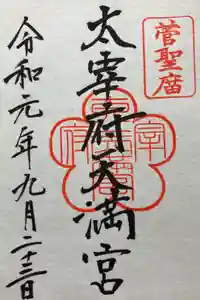 菅聖庿
太宰府天満宮
令和元年九月二十三日